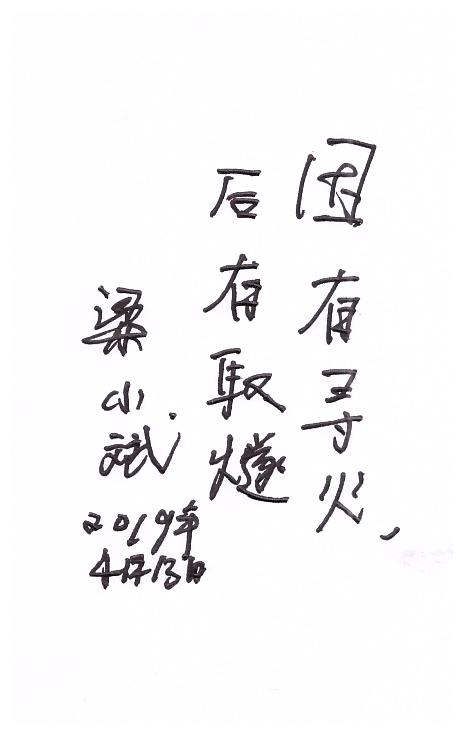 固有寻火，
后有取燧
梁小斌
2019年
4月13日